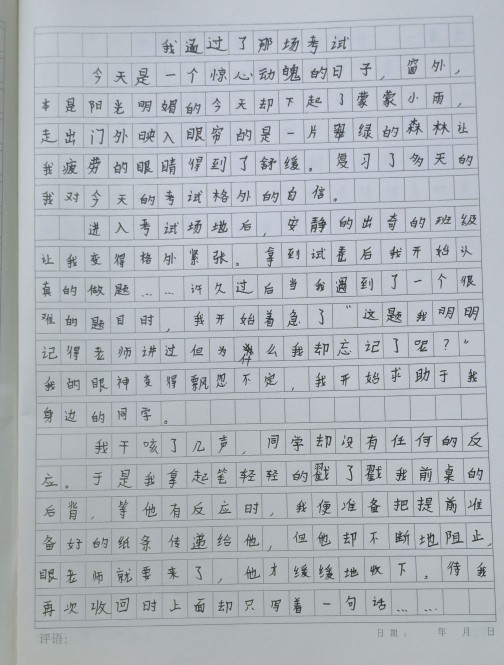 我通过了那场考试
今天是一个惊心动魄的日子，窗外，
本是阳光明媚的今天却下起了蒙蒙小雨，
走出门外映入眼帘的是一片翠绿的森林让
我疲劳的眼睛得到了舒缓。复习了多天的
我对今天的考试格外的自信。
进入考试场地后，安静的出奇的班级
让我变得格外紧张。拿到试卷后我开始认
真的做题……许久过后当我遇到了一个很
难的题目时，我开始着急了“这题我明明
记得老师讲过但为什么我却忘记了呢？”
我的眼神变得飘忽不定，我开始求助于我
身边的同学。
我干咳了几声，同学却没有任何的反
应。于是我拿起笔轻轻的戳了戳我前桌的
后背，等他有反应时，我便准备把提前准
备好的纸条传递给他，但他却不断地阻止，
眼老师就要来了，他才缓缓地收下。待我
再次收回时上面却只写着一句话……
评语：
日期： 年 月 日